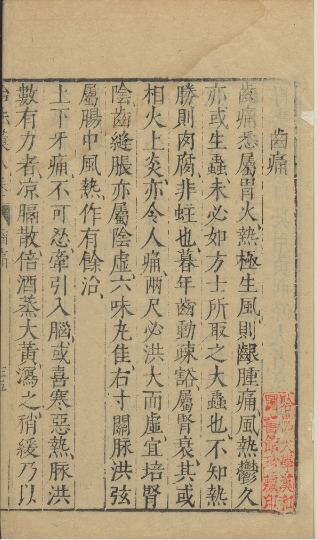 齒痛
齒痛悉屬胃火熱極生風則齦腫痛風熱鬱久
亦或生蟲未必如方士所取之大蟲也不知熱
勝則肉腐非蛀也暮年齒動疎豁屬腎衰其或
相火上炎亦令人痛兩尺必洪大而虛宜培腎
陰齒縫脹亦屬陰虛六味丸佳右寸關脉洪弦
屬腸中風熱作有餘治
上下牙痛不可忍牽引入腦或喜寒惡熱脉洪
數有力者凉膈散倍酒蒸大黃瀉之稍緩乃以